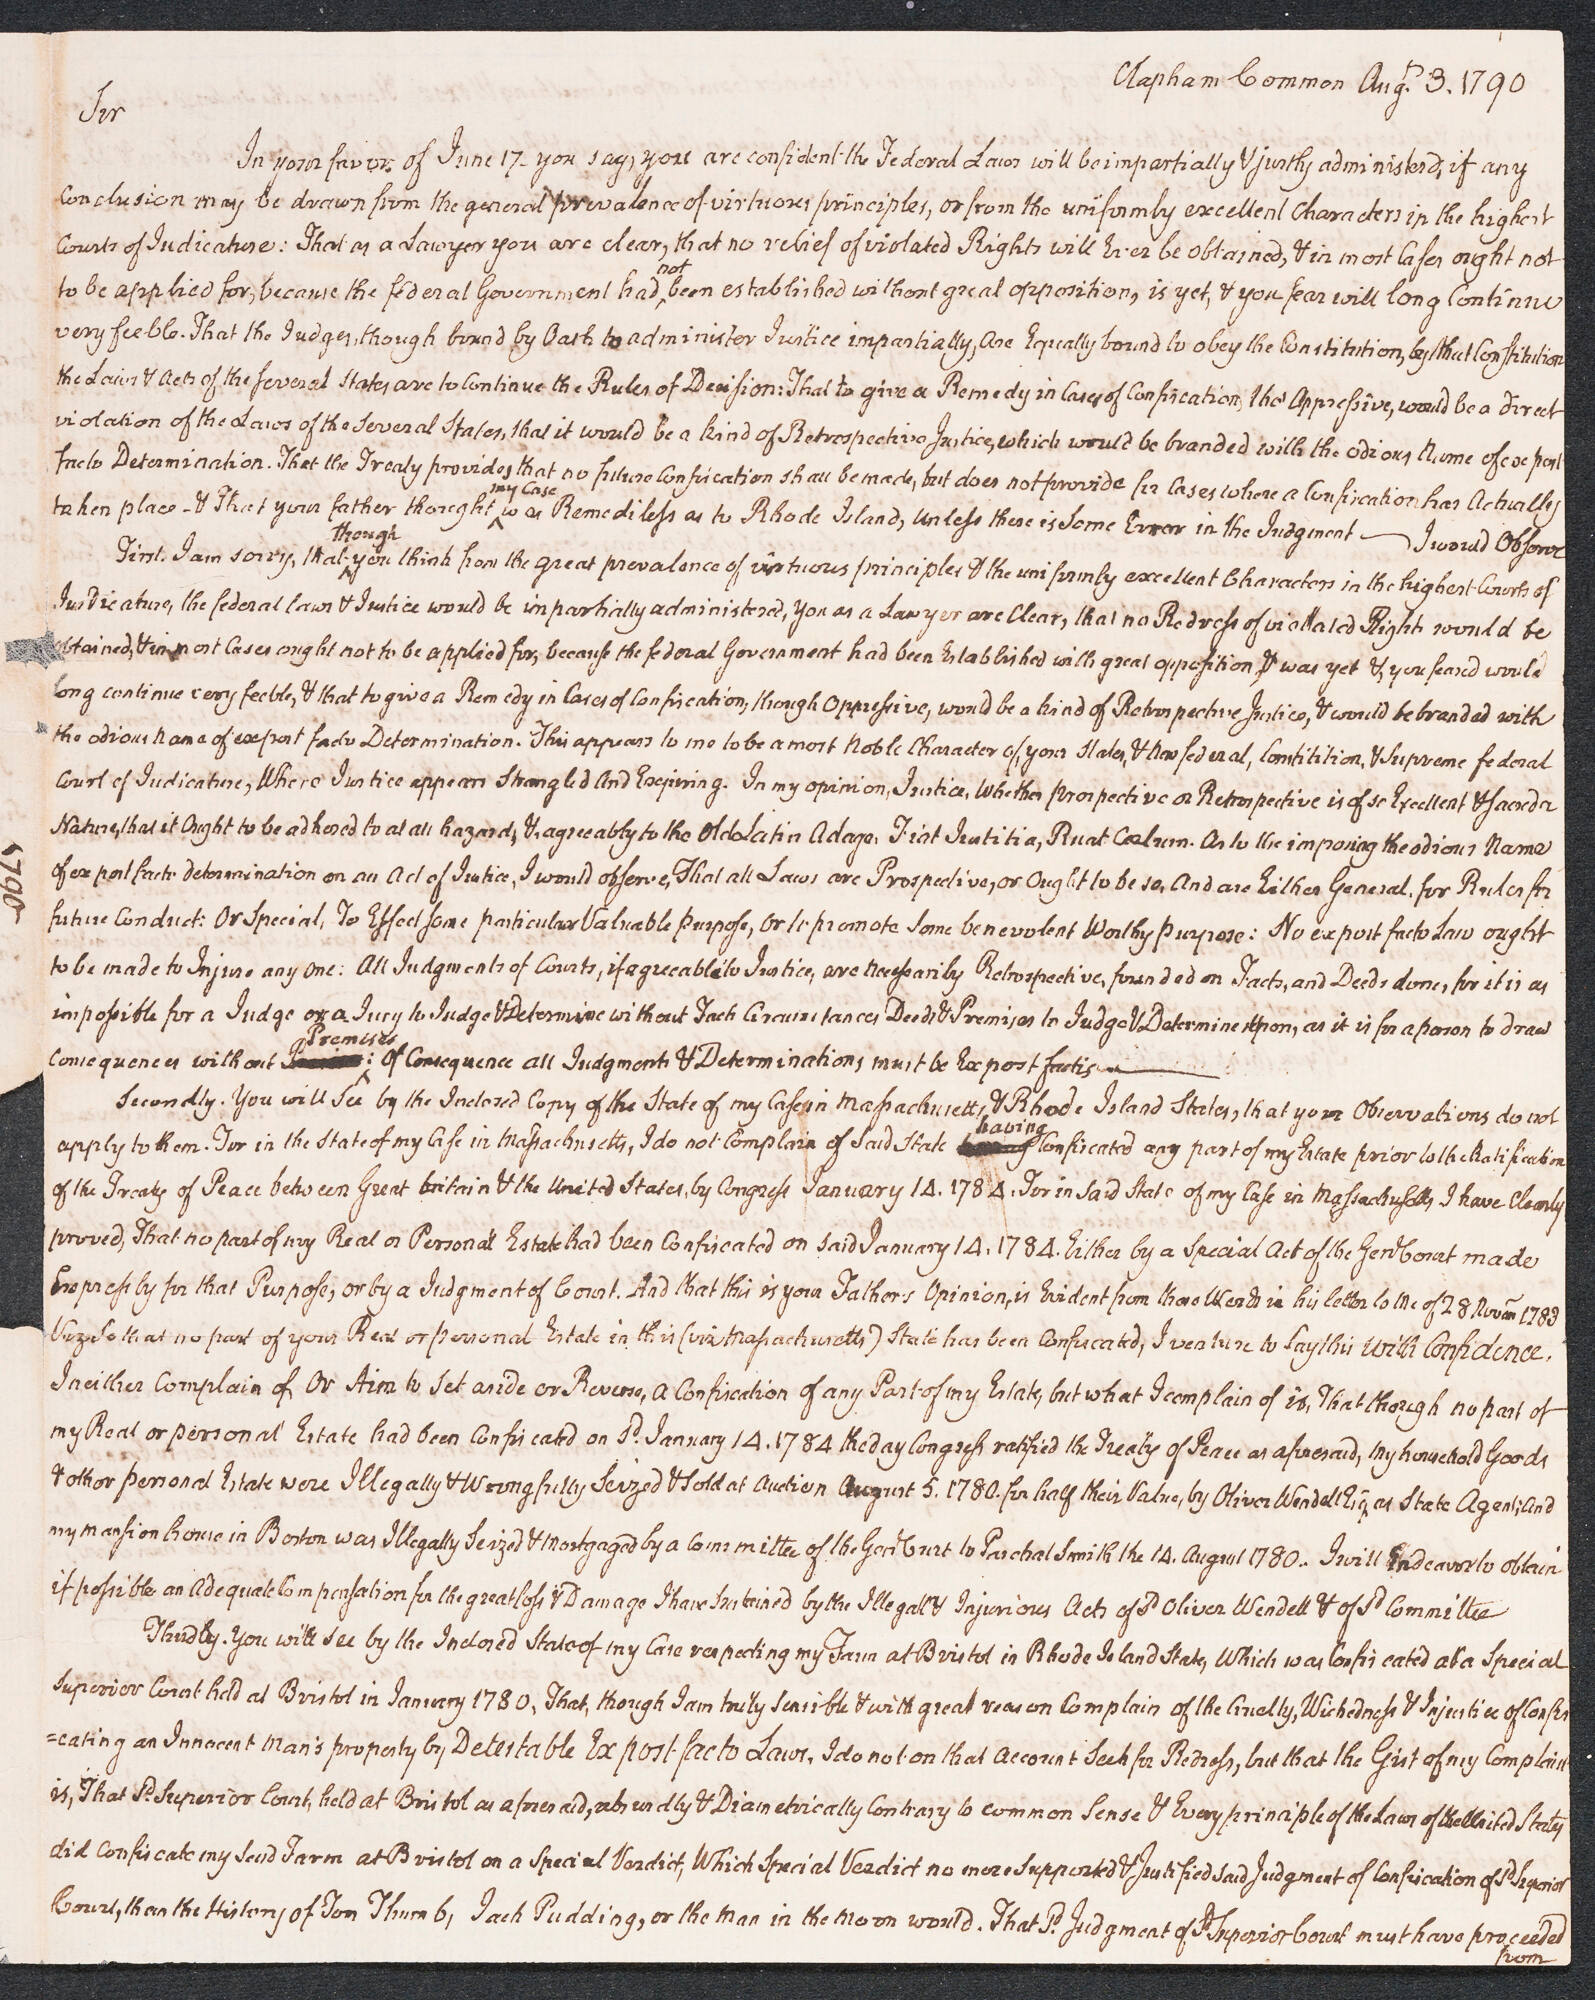 Clapham Common Augt. 3. 1790
Sir
In your favor of June 17. you say, you are confident the Federal Laws will be impartially & justly administerd, if any
Conclusion may be drawn from the general prevalence of virtuous principles, or from the uniformly excellent Characters in the highest
Courts of Judicature: That as a Lawyer you are clear, that no relief of violated Rights will Ever be obtained, & in most Cases ought not
to be applied for, because the federal Government had not been established without great opposition, is yet, & you fear will long Continue
very feeble. That the Judges, though bound by Oath to administer Justice impartially, are Equally bound to obey the Constitution, by that Constitution
the Laws & Acts of the several States, are to Continue the Rules of Decision: That to give a Remedy in Cases of Confiscation, tho' Oppressive, would be a direct
violation of the Laws of the Several States, that it would be a kind of Retrospective Justice, which would be branded with the odious Name of ex post
facto Determination. That the Treaty provides, that no future Confiscation shall be made, but does not provide for Cases where a Confiscation has Actually
taken place - & That your father thought my Case was Remediless as to Rhode Island, Unless there is Some Error in the Judgment — I would Observe
First. I am sorry, that though you think from the great prevalence of virtuous principles & the uniformly excellent Characters in the highest Courts of
Judicature, the federal laws & Justice would be impartially administered, You as a Lawyer are Clear, that no Redress of violated Rights would be
obtained, & in most Cases ought not to be applied for, because the federal Government had been Established with great opposition, & was yet &, you feared would
long continue very feeble, & that to give a Remedy in Cases of Confiscation, though Oppressive, would be a kind of Retrospective Justice, & would be branded with
the odious Name of ex post facto Determination. This appears to me to be a most Noble Character of, your States, & New federal, Constitition, & Supreme federal
Court of Judicature, Where Justice appears Strangled And Expiring. In my opinion, Justice, Whether prospective or Retrospective is of so Excellent & Sacred a
Nature, that it Ought to be adhered to at all hazards, & agreeably to the Old Latin Adage. Fiat Justitia, Ruat Cœlum. As to the imposing the odious Name
of ex post facto determination on an Act of Justice, I would observe, That all Laws are Prospective, or Ought to be so, And are Either General, for Rules for
future Conduct: Or Special, To Effect some particular Valuable Purpose, or to promote Some benevolent Worthy Purpose: No ex post facto Law ought
to be made to Injure any One: All Judgments of Courts, if agreeable to Justice, are necessarily Retrospective, founded on Facts, and Deeds done, for it is as
impossible for a Judge or a Jury to Judge & Determine without Facts Circumstances Deeds & Premises to Judge & Determine upon, as it is for a person to draw
Consequences without Premises: Of Consequence all Judgments & Determinations must be Ex post factis
Secondly. You will See by the Inclosed Copy of the State of my Case in Massachusetts, & Rhode Island States, that your Observations do not
apply to them. For in the State of my Case in Massachusetts, I do not Complain of Said State having Confiscated any part of my Estate prior to the Ratification
of the Treaty of Peace between Great britain & the United States, by Congress January 14. 1784. For in Said State of my Case in Massachusetts, I have Clearly
proved, That no part of my Real or Personal Estate had been Confiscated on said January 14. 1784. Either by a Special Act of the Genl Court made
Expressly for that Purpose, or by a Judgment of Court. And that this is your Father's Opinion, is Evident from these Words in his letter to Me of 28 Novem 1783
Viz. So that no part of your Real or personal Estate in this (viz Massachusetts) State has been Confiscated, I venture to Say this with Confidence.
I neither Complain of, Or Aim to Set aside or Reverse, a Confiscation of any Part of my Estate, but what I complain of is, That though no part of
my Real or personal Estate had been Confiscated on Sd. January 14. 1784 the day Congress ratified the Treaty of Peace as aforesaid, My household Goods
& other personal Estate were Illegally & Wrongfully Seized & Sold at Auction August 5. 1780. for half their Value, by Oliver Wendell Esq as State Agent; And
my mansion house in Boston was Illegally Seized & Mortgaged by a Committee of the Genl Court to Paschal Smith the 14. August 1780.. I will Indeavor to obtain
if possible an Adequate Compensation for the great loss & Damage I have Sustained by the Illegal & Injurious Acts of Sd Oliver Wendell & of Sd Committee
Thirdly. You will See by the Inclosed State of my Case respecting my Farm at Bristol in Rhode Island State, Which was Confiscated at a Special
Superior Court held at Bristol in January 1780, That, though I am truly Sensible & with great reason Complain of the Cruelty, Wickedness & Injustice of Confis
=cating an Innocent Man's property by Detestable Ex post facto Laws, I do not on that Account Seek for Redress, but that the Gist of my Complaint
is, That Sd Superior Court, held at Bristol as aforesaid, absurdly & Diametrically Contrary to common Sense & Every principle of the Laws of the United States
did Confiscate my Said Farm at Bristol on a Special Verdict, Which Special Verdict no more Supported & Justified said Judgment of Confiscation of Sd Superior
Court, than the History of Tom Thumb, Jack Pudding, or the Man in the Moon would. That Sd. Judgment of Sd Superior Court must have proceeded
from
1790